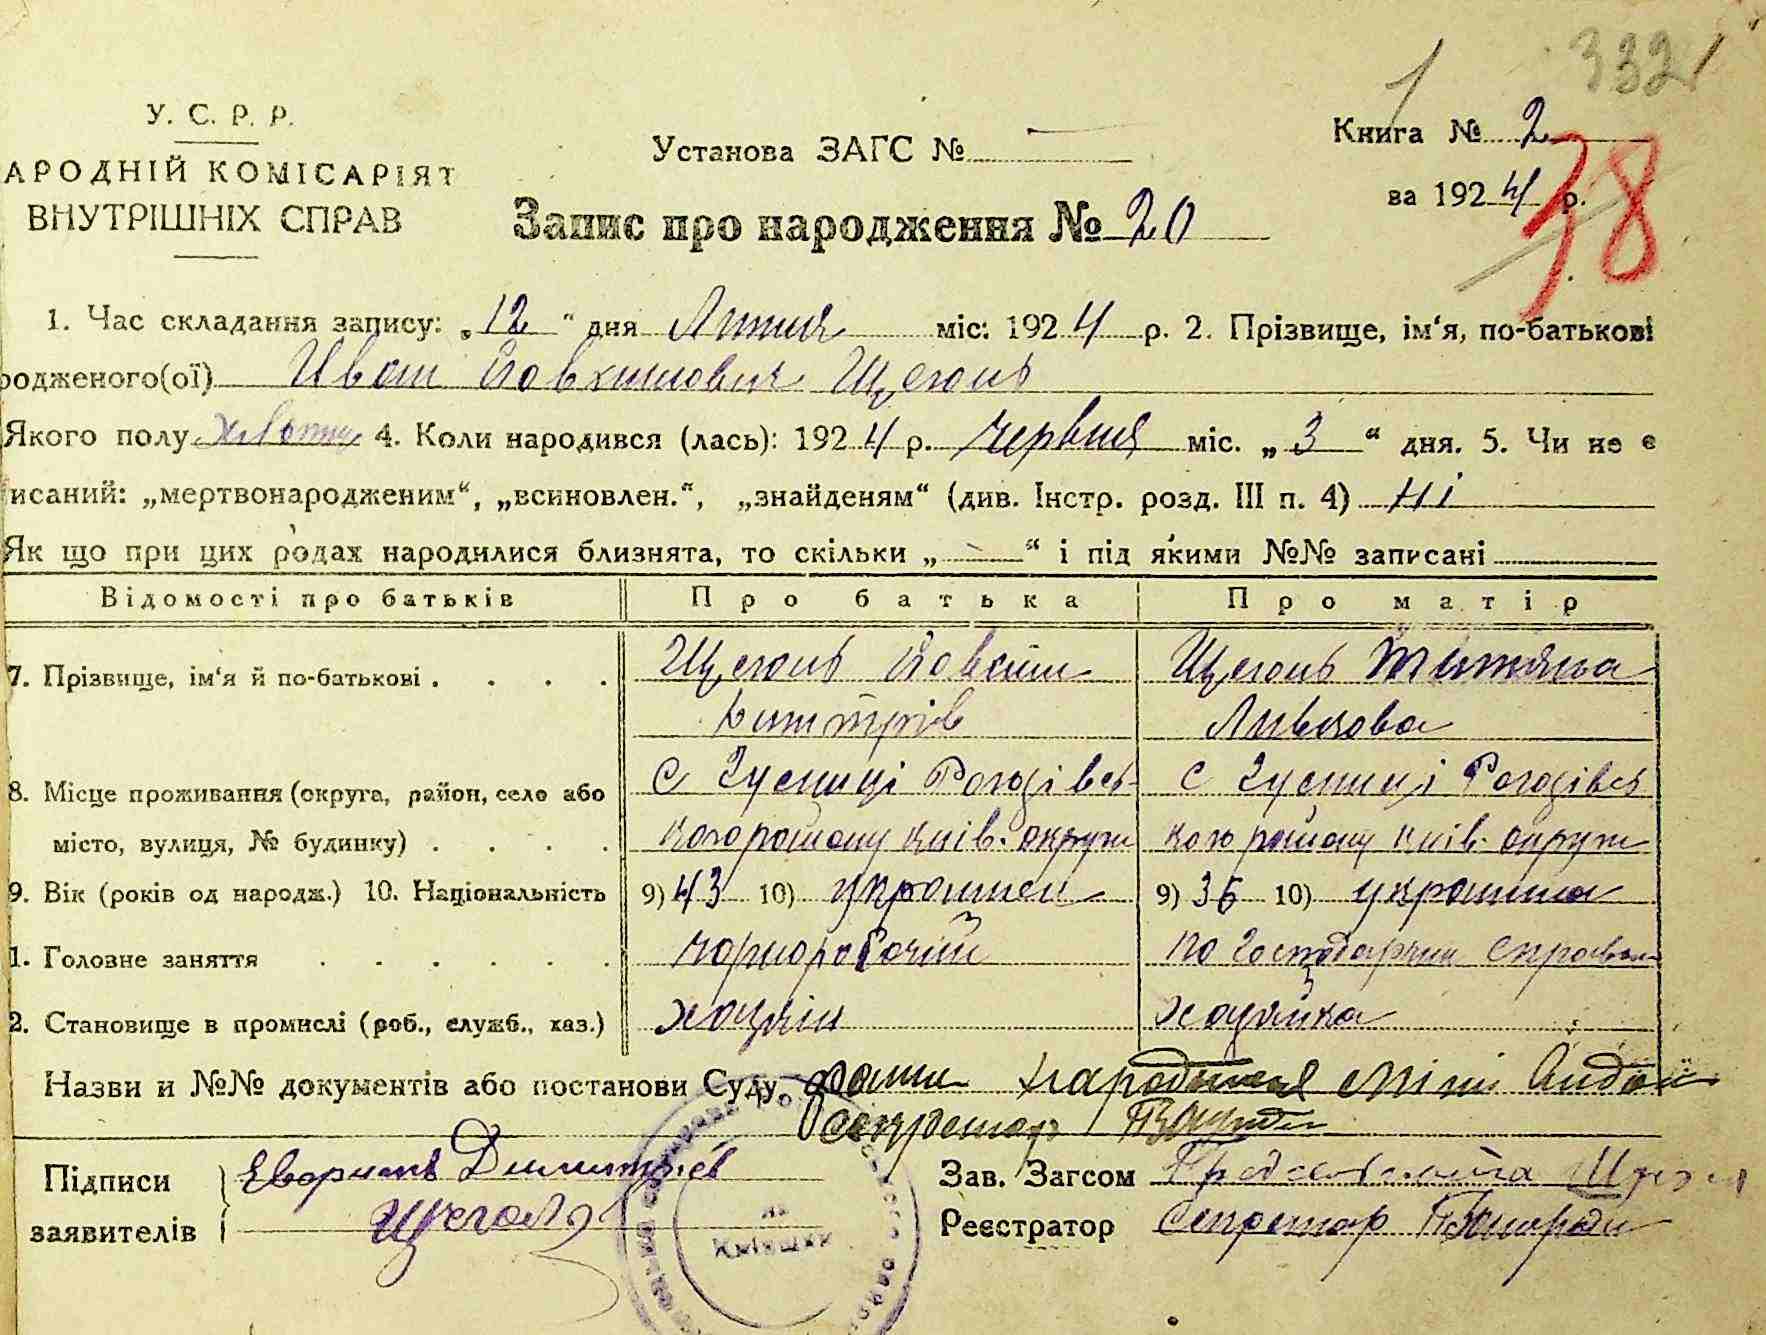 332
У. С. Р. Р.
АРОДНІЙ КОМІСАРІЯТ
ВНУТРІШНІХ СПРАВ
Установа ЗАГС №
Книга № 2
ва 1924 р.
38
Запис про народження № 20
1. Час складання запису: „12“ дня Липня міс: 1924 р. 2. Прізвище, ім‘я, по-батькові
родженого(ої) Иван Йовхимович Щеголь
Якого полу хлопч 4. Коли народився (лась): 1924 р. червня міс. „3“ дня. 5. Чи не є
исаний: „мертвонародженим“, „всиновлен.“, „знайденям“ (див. Інстр. розд. III п. 4) Ні
Як що при цих родах народилися близнята, то скільки „—“ і під якими №№ записані
Відомості про батьків Про батька Про матір
7. Прізвище, ім‘я й по-батькові . . . . Щеголь Йовхим Щеголь Тытяна
Дмитрів
8. Місце проживання (округа, район, село або с Гусинці Рогозівсь- с Гусинці Рогозівсь
місто, вулиця, № будинку) . . . . кого району київ. округи кого району київ. округи
9. Вік (років од народж.) 10. Національність 9) 43 10) украинец 9) 36 10) украинка
1. Головне заняття . . . . . . чорноробочий по господарчим справам
2. Становище в промислі (роб., служб., хаз.) хазяін хазяйка
Назви и №№ документів або постанови Суду
секретар
Підписи
заявителів
Дмитріев
Щеголь
Зав. Загсом
Реєстратор Секретар
Київщин